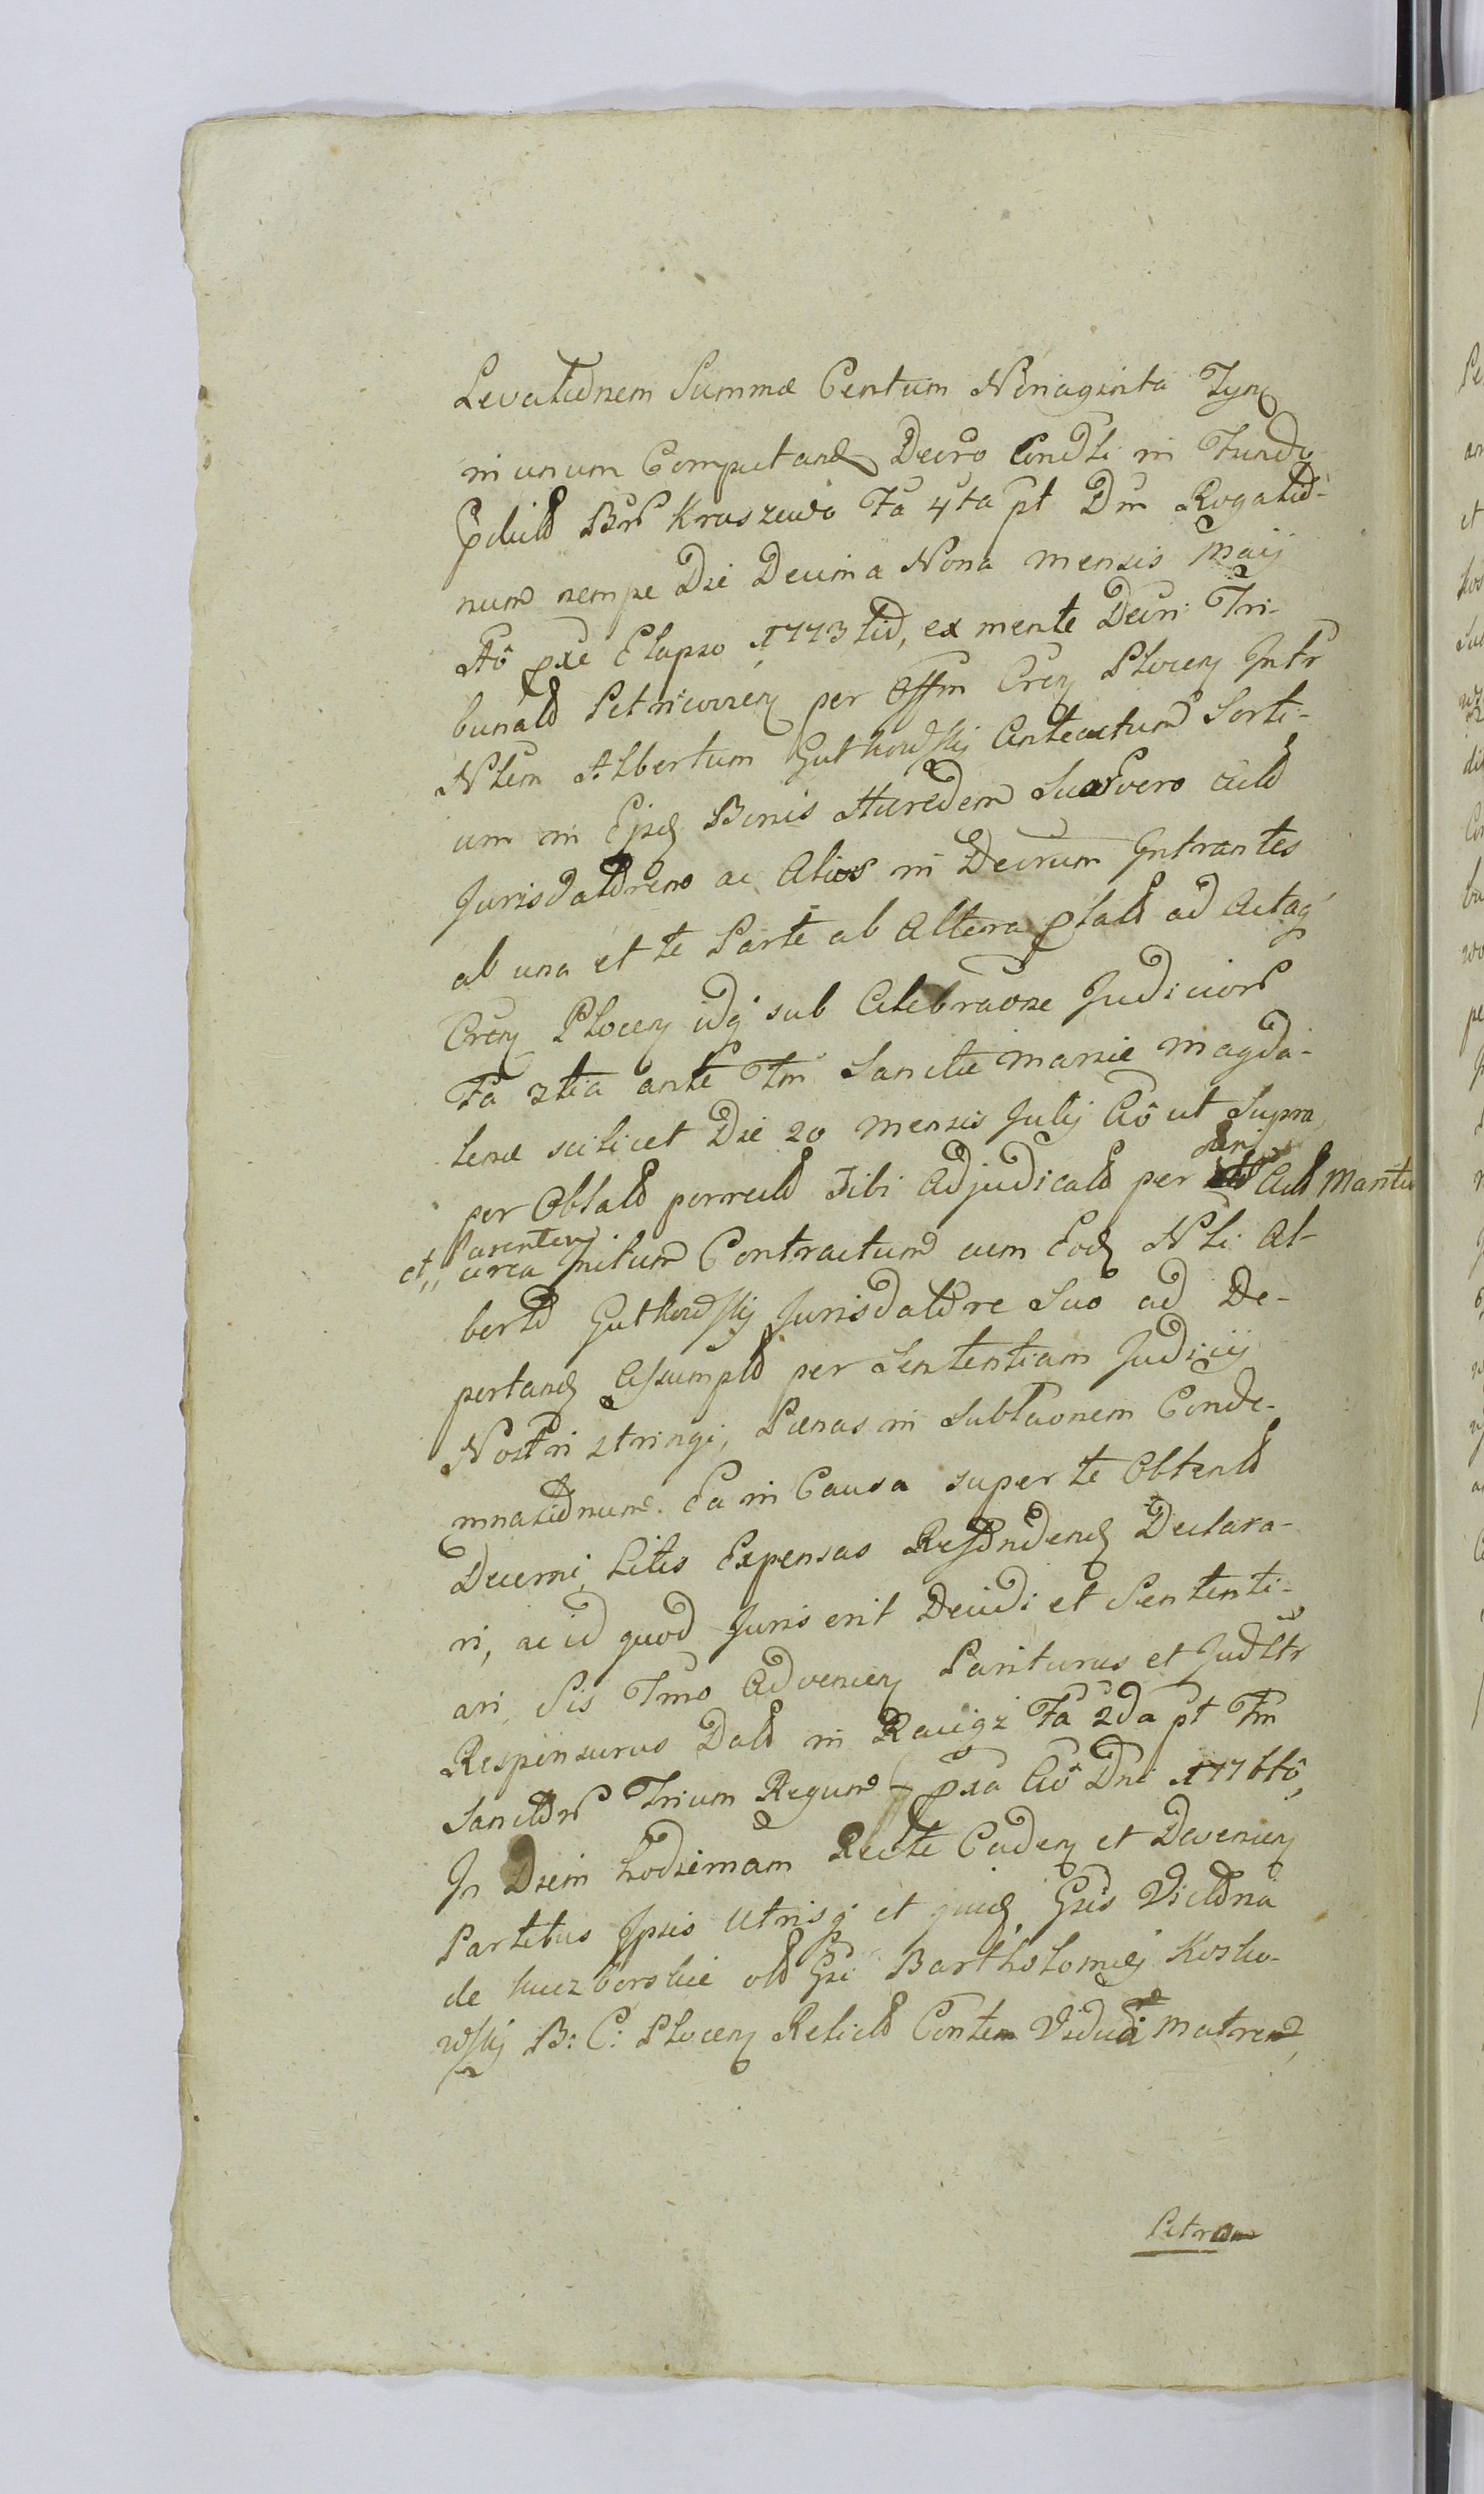 Levationem Summæ Centum Nonaginta Tyn
in unum Computand Decro Condti in Fundo
pdict Brr Kraszewo Fa 4ta pt Dm Rogatio-
num nempe Die Decima Nona mensis Maij
Aô pxe Elapso 1773tio, ex mente Decri Tri-
bunalis Petricovien per Offm Cren Plocen Intr
Nlem Albertum Gutkowskij Anteactum Sorti-
um in Ejsd Bonis Hæredem Suum vero
Jurisdatorem ac Alios in Decrum Intrantes
ab una et te Parte ab Altera plati ad Actaq
Cren Plocen idq sub Celebraone Judiciorr
Fa 3tia ante Fm Sanctæ Mariæ Magda-
lenæ scilicet Die 20 mensis Julij Aô ut Supra
per Oblat porrect Tibi Adjudicat per olim Maritu
et Parentem
circa Initum Contractum cum Eod Nli Al-
berto Gutkowskij Jurisdatore Suo ad De-
portand Assumpt per Sententiam Judicij
Nostri stringi, Pænas in Sublaonem Conde-
mnationum Ea in Causa super te Obtent
Decerni, Litis Expensas Refundend Declara-
ri, ac id quod Juris erit Decidi et Sententi-
ari, Sis Tmo Advenien Pariturus et Judltr
Responsurus Dat in Raciąz Fa 2da pt Fm
Sanctorr Trium Regum pxa Aô Dni 1776tô,
In Diem hodiernam Recte Caden et Devenien
Partibus Ipsis Utrisq et quid Gsis Victoria
de Kuczborskie olt Gsi Bartholomæj Kosko-
wskij B: C: Plocen Relict Conten Vidua Matrem,
Petrum